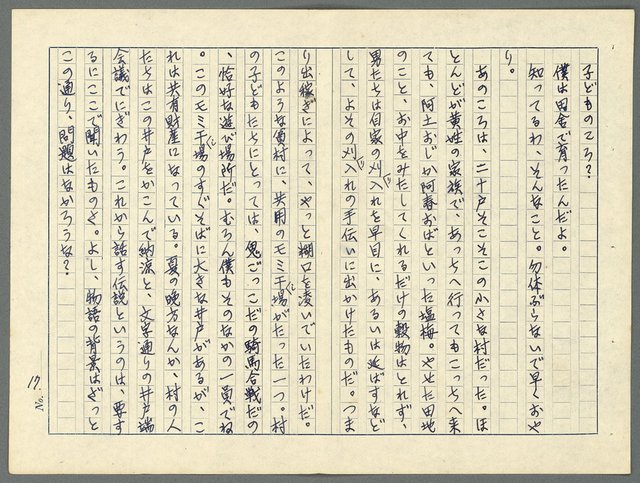 子どものころ？
僕は田舎で育ったんだよ。
知ってるわ、そんなこと。勿体ぶらないで早くおや
り。
あのころは、二十戸そこそこの小さな村だった。ほ
とんどが黄姓の家族で、あっちへ行ってもこっちへ来
ても、阿土おじか阿春おばといった塩梅。やせた田地
のこと、お中をみたしてくれるだけの穀物はとれず、
男たちは自家の刈り入れを早目に、あるいは延ばすなど
して、よその刈り入れの手伝いに出かけたものだ。つま
り出稼ぎによって、やっと糊口を凌いでいたわけだ。
このような貧村に、共用のモミ干し場がたった一つ。村
の子どもたちにとっては、鬼ごっこだの騎馬合戦だの
、恰好な遊び場所だ。むろん僕もそのなかの一員でね
。このモミ干し場のすぐそばに大きな井戸があるが、こ
れは共有財産になっている。夏の晩方なんか、村の人
たちはこの井戸をかこんで納涼と、文字通りの井戸端
会議でにぎわう。これから話す伝説というのは、要す
るにここで聞いたものさ。よし、物語の背景はざっと
この通り、問題はなかろうな？
17.
No.